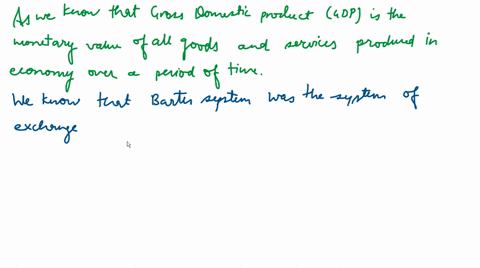 As we know that Gross Domestic product (GDP) is the
monetary value of all goods and services produced in
economy over a period of time.
We know that Barter system was the system of
exchange